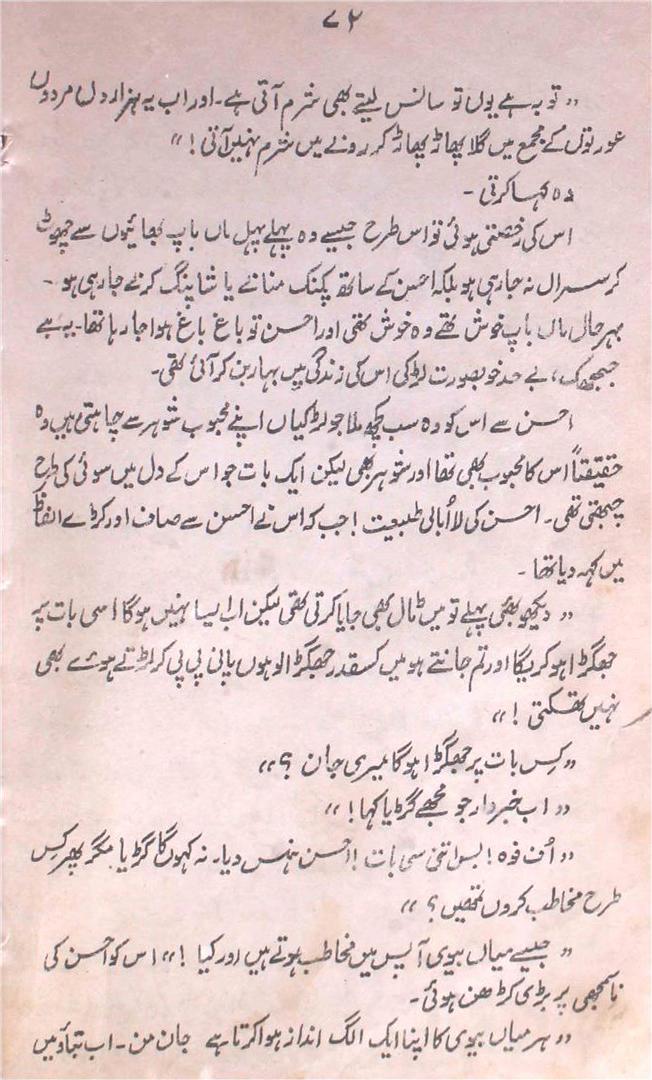 ۷۲
،، توبہ ہے یوں تو سانس لیتے بھی شرم آتی ہے۔ اور اب یہ ہزاروں مردوں
عورتوں کے مجمع میں گلا پھاڑ پھاڑ کر رونے میں شرم نہیں آتی! ،،
وہ کہا کرتی۔
اس کی رخصتی ہوئی تو اس طرح جیسے وہ پہلے پہل ماں باپ بھائیوں سے چھوٹ
کر سسرال نہ جا رہی ہو بلکہ احسن کے ساتھ پکنک منانے یا شاپنگ کرنے جا رہی ہو۔
بہر حال ماں باپ خوش تھے وہ خوش تھی اور احسن تو باغ باغ ہوا جا رہا تھا۔ یہ بے
جھجھک، بے حد خوبصورت لڑکی اس کی زندگی میں بہار بن کر آئی تھی۔
احسن سے اس کو وہ سب کچھ ملا جو لڑکیاں اپنے محبوب شوہر سے چاہتی ہیں وہ
حقیقتاً اس کا محبوب بھی تھا اور شوہر بھی لیکن ایک بات جو اس کے دل میں سوئی کی طرح
چبھتی تھی۔ احسن کی لااُبالی طبیعت! جب کہ اس نے احسن سے صاف اور کڑے الفاظ
میں کہہ دیا تھا۔
،، دیکھو بھئی پہلے تو میں ٹال بھی جایا کرتی تھی لیکن اب ایسا نہیں ہوگا اسی بات پر
جھگڑا ہو کریگا اور تم جانتے ہو میں کسقدر جھگڑالو ہوں پانی پی پی کر لڑتے ہوئے بھی
نہیں تھکتی! ،،
،، کس بات پر جھگڑا ہوگا میری جان؟ ،،
،، اب خبردار جو مجھے گڑیا کہا! ،،
،، اُف فوہ! بس اتنی سی بات! احسن ہنس دیا۔ نہ کہوں گا گڑیا مگر پھر کس
طرح مخاطب کروں تمھیں؟ ،،
،، جیسے میاں بیوی آپس میں مخاطب ہوتے ہیں اور کیا! ،، اس کو احسن کی
ناسمجھی پر بڑی کڑھن ہوئی۔
،، ہر میاں بیوی کا اپنا ایک الگ انداز ہوا کرتا ہے جان من۔ اب بتاؤ میں